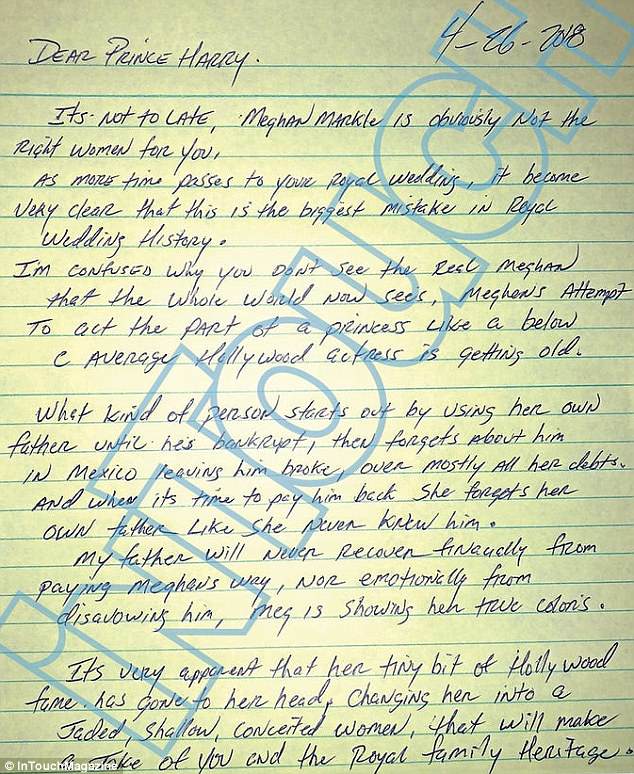 4-26-2018
DEAR PRINCE HARRY.
Its not to LATE, Meghan MARKle is obviously Not the
Right Women for you,
As MORE time passes to your Royal Wedding, it become
very clear that this is the biggest mistake in Royal
Wedding History.
I'm confused why you Don't see the Real Meghan
that the whole world Now sees, Meghan's Attempt
To act the PART of a princess Like a below
C AVERAGE Hollywood actress is getting old.
What kind of person starts out by using her own
father until he's bankrupt, then forgets About him
IN Mexico leaving him broke, over mostly All her debts.
And when its time to pay him back She forgets her
OWN father Like She Never Knew him.
My father will Never Recover finacially from
paying Meghans way, NOR emotionally from
disavowing him, Meg is Showing her true colors.
It's very apparent that her tiny bit of Hollywood
fame has gone to her head, Changing her into a
Jaded, Shallow, conceited women, that will make
a Joke of you and the Royal family Heritage.
INTOUCH
© InTouchMagazine